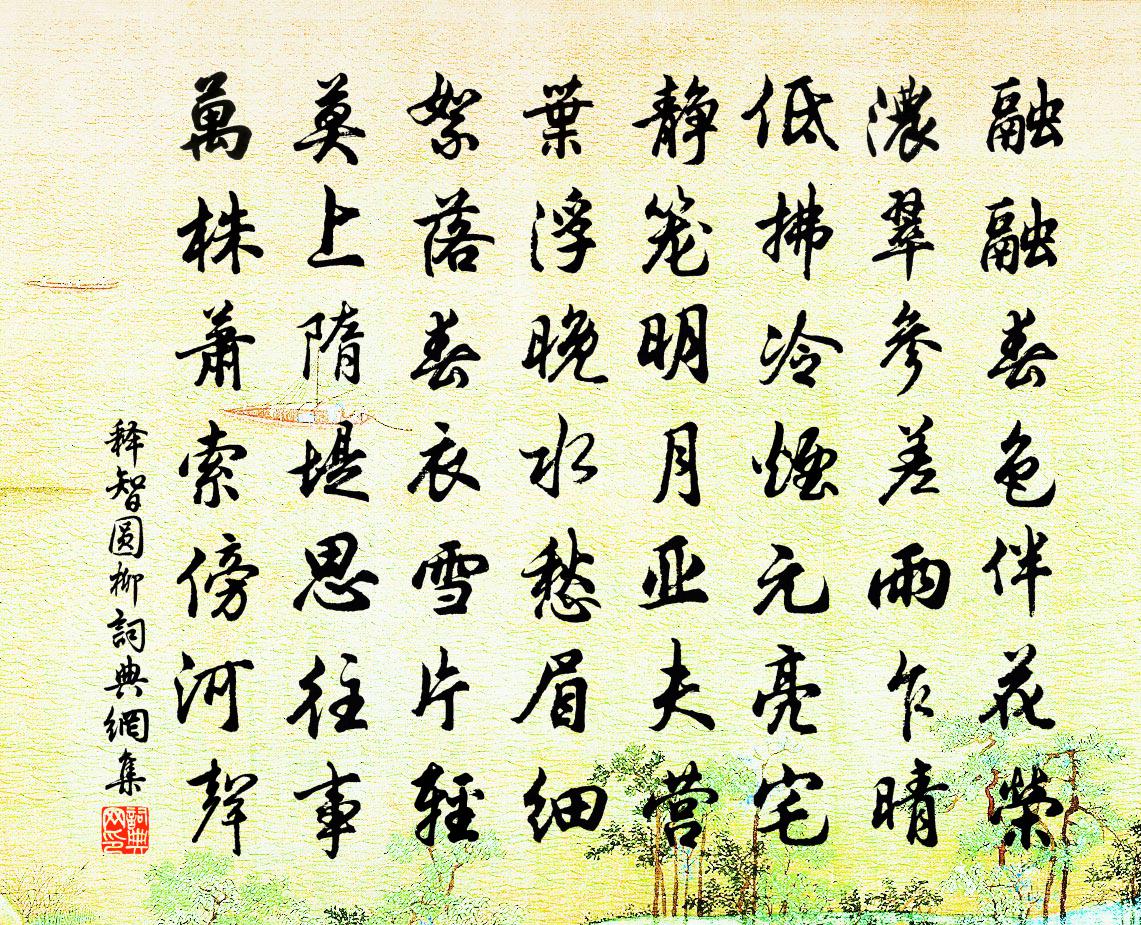 融融春色伴花榮
濃翠參差雨乍晴
低拂冷煙元亮宅
靜笼明月亚夫营
葉浮晚水愁眉細
絮落春衣雪片輕
莫上隋堤思往事
萬株萧索傍河聲
释智圆柳詞典網集
詞典网印